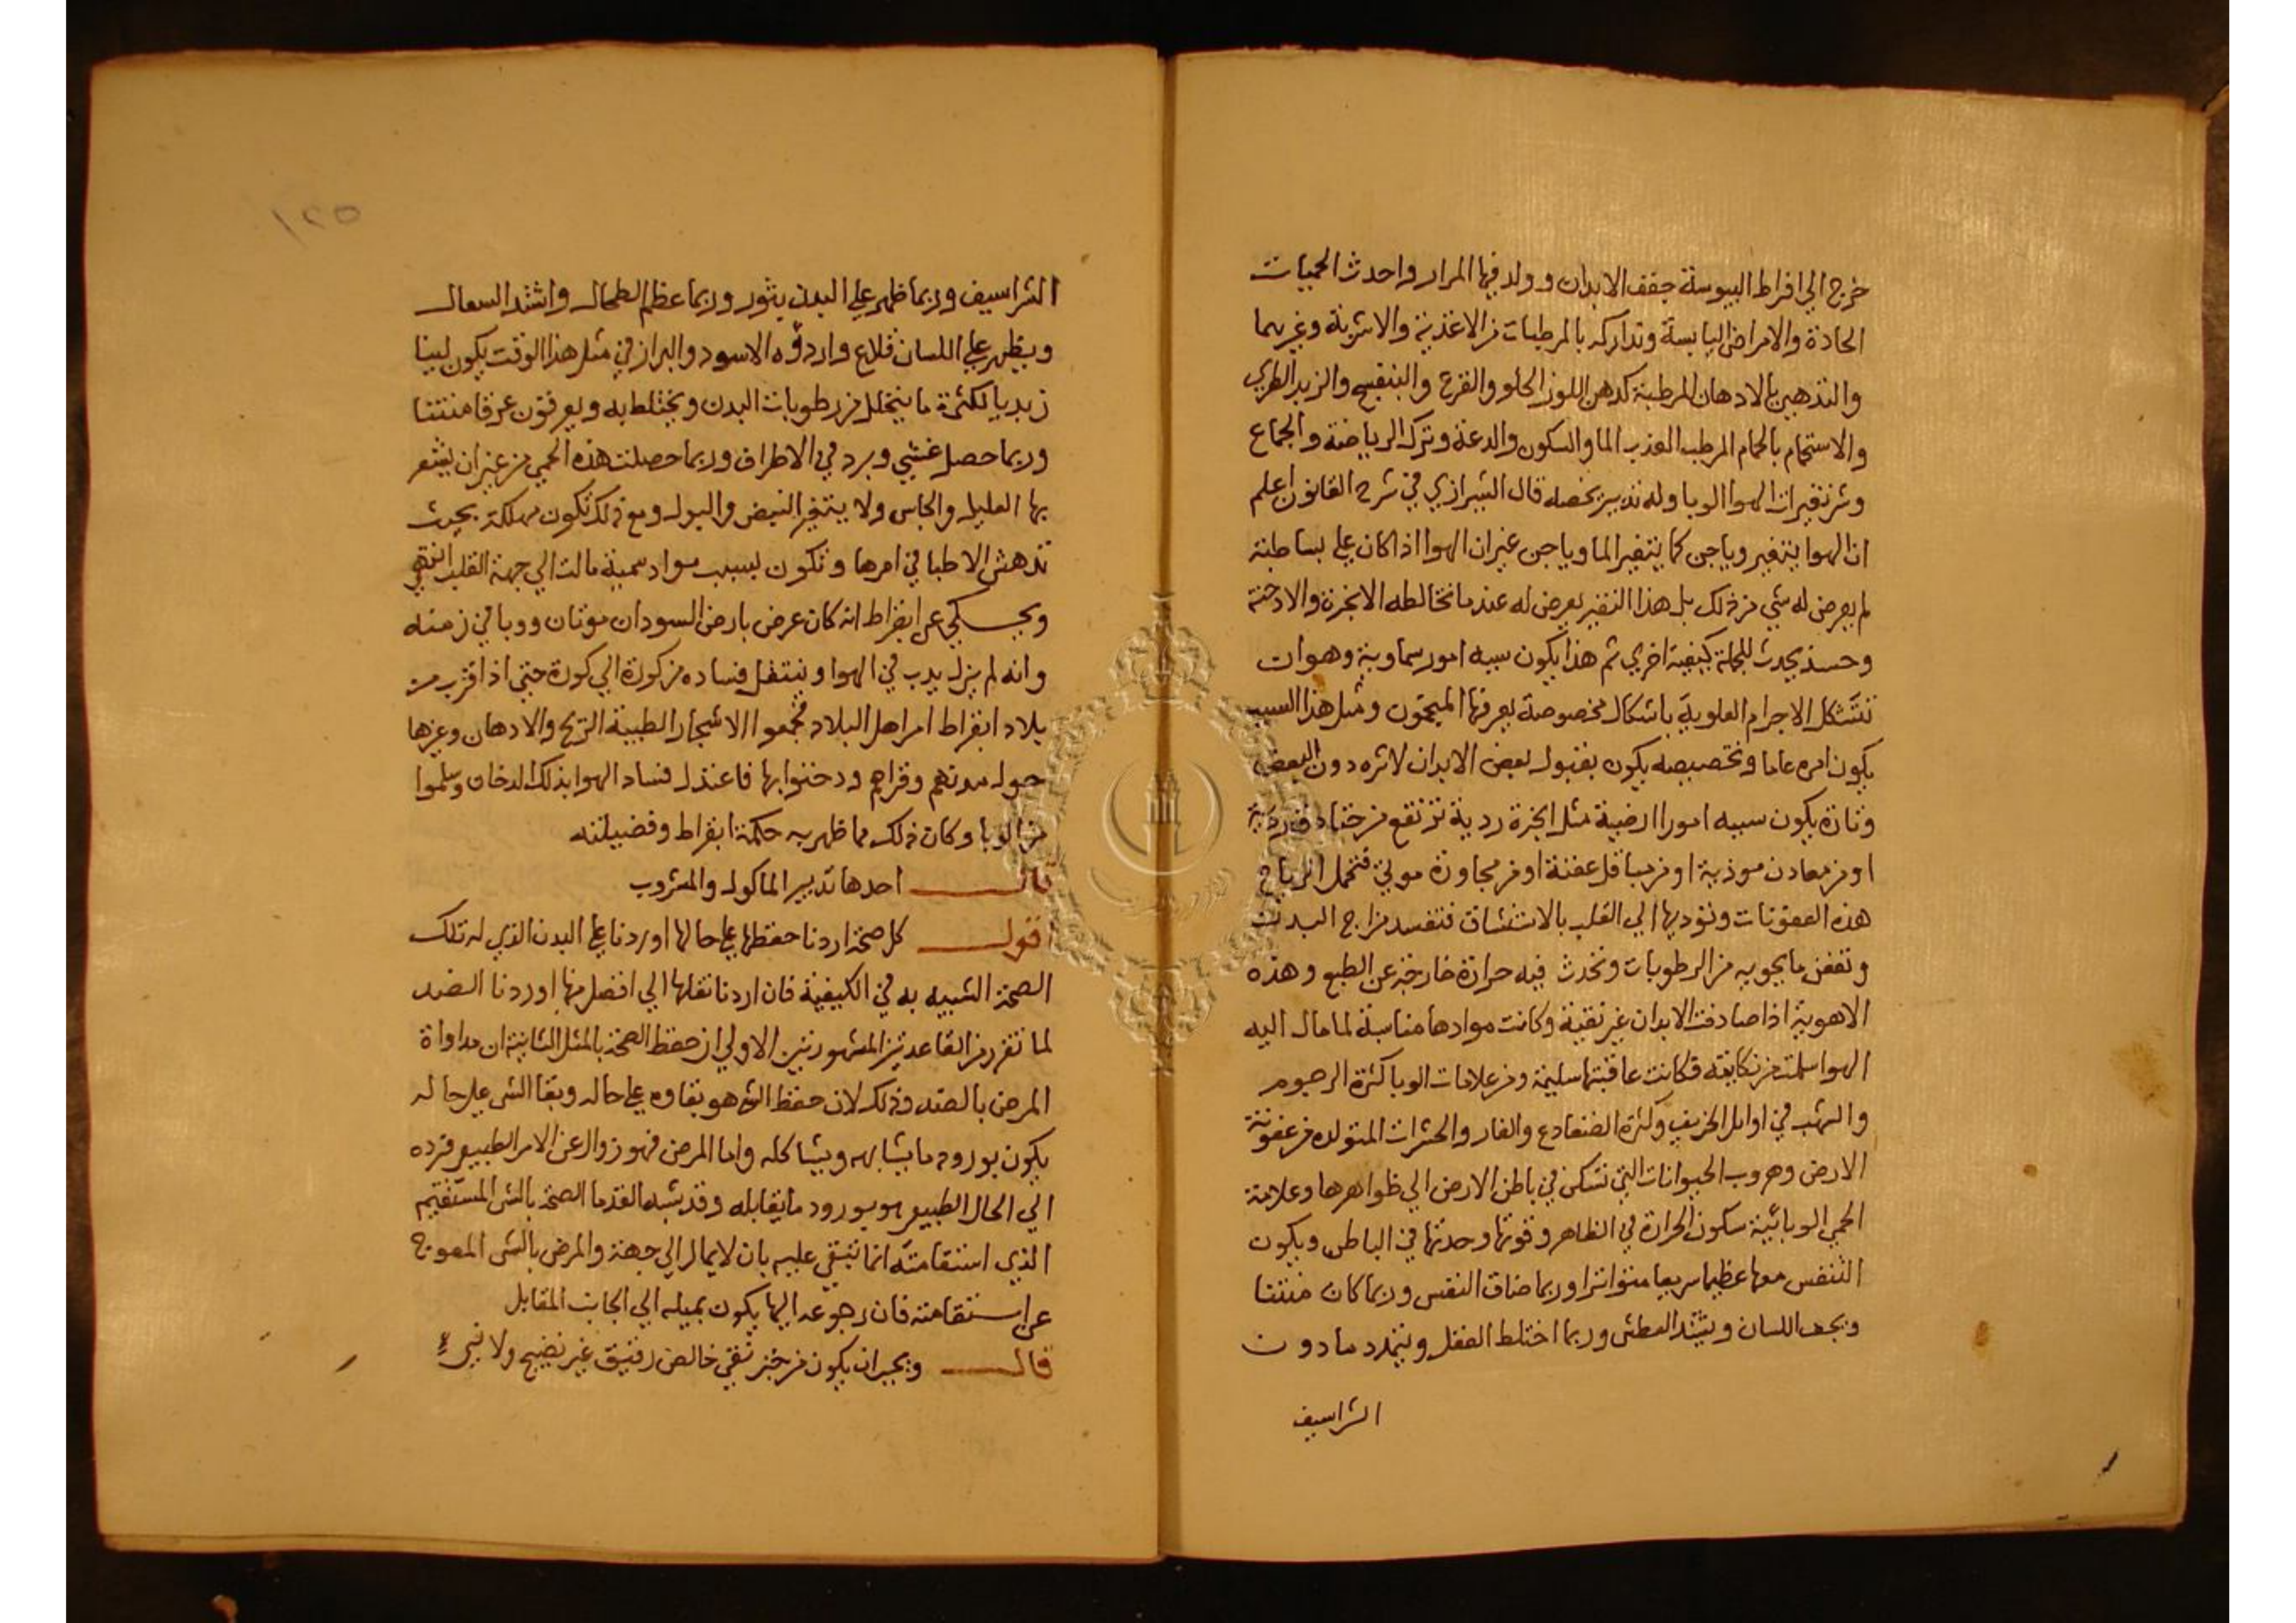 خرج الي افراط اليبوسة جفف الابدان وولد فيها المرار واحدث الحميات
الحادة والامراض اليابسة وتداركه بالمرطبات من الاغذية والاشربة وغيرهما
والتدهين بالادهان المرطبة كدهن اللوز الحلو والقرع والبنفسج والزبد الطري
والاستحمام بالحمام المرطب العذب الما والسكون والدعة وترك الرياضة والجماع
وشر تغيرات الهوا الوبا وله تدبير يخصه قال الشيرازي في شرح القانون اعلم
ان الهوا يتغير وياجن كما يتغير الما وياجن غير ان الهوا اذا كان علي بساطته
لم يعرض له شي من ذلك بل هذا التغير يعرض له عند ما تخالطه الابخرة والادخنة
وحينئذ يحدث للجملة كيفية اخري ثم هذا يكون سببه امور سماوية وهو ان
تتشكل الاجرام العلوية باشكال مخصوصة يعرفها المنجمون ومثل هذا السبب
يكون امره عاما وتخصيصه يكون بقبول بعض الابدان لاثره دون البعض
وتارة يكون سببه امورا ارضية مثل ابخرة ردية ترتفع من خنادق ردية
او من معادن موذية او من مباقل عفنة او من مجاورة موتي فتحمل الرياح
هذه العفونات وتؤديها الي القلب بالاستنشاق فتفسد مزاج البدن
وتعفن ما يحويه من الرطوبات وتحدث فيه حرارة خارجة عن الطبع وهذه
الاهوية اذا صادفت الابدان غير نقية وكانت موادها مناسبة لما مال اليه
الهوا سلمت من نكايته فكانت عاقبتها سليمة ومن علامات الوبا كثرة الرجوم
والشهب في اوايل الخريف وكثرة الضفادع والفار والحشرات المتولده من عفونة
الارض وهروب الحيوانات التي تسكن في باطن الارض الي ظواهرها وعلامة
الحمي الوبائية سكون الحرارة في الظاهر وقوتها وحدتها في الباطن ويكون
التنفس معها عظيما سريعا متواترا وربما ضاق النفس وربما كان منتنا
ويجف اللسان ويشتد العطش وربما اختلط العقل ويتمدد ما دون
الشراسيف
١٢٥
الشراسيف وربما ظهر علي البدن بثور وربما عظم الطحال واشتد السعال
ويظهر علي اللسان قلاع واردؤه الاسود والبراز في مثل هذا الوقت يكون لينا
زبديا لكثرة ما يتحلل من رطوبات البدن ويختلط به ويعرقون عرقا منتنا
وربما حصل غشي وبرد في الاطراف وربما حصلت هذه الحمي من غير ان يشعر
بها العليل والجاس ولا يتغير النبض والبول ومع ذلك تكون مهلكة بحيث
تدهش الاطبا في امرها وتكون بسبب مواد سمية مالت الي جهة القلب انتهي
ويحكي عن ابقراط انه كان عرض بارض السودان موتان ووبا في زمنه
وانه لم يزل يدب في الهوا وينتقل فساده من كورة الي كورة حتي اذا قرب من
بلاد ابقراط امر اهل البلاد فجمعوا الاشجار الطيبة الريح والادهان وغيرها
حول مدنهم وقراهم ودخنوا بها فاعتدل فساد الهوا بذلك الدخان وسلموا
من الوبا وكان ذلك مما ظهر به حكمة ابقراط وفضيلته
قال احدها تدبير الماكول والمشروب
اقول كل صحة اردنا حفظها علي حالها اوردنا علي البدن الذي له تلك
الصحة الشبيه به في الكيفية فان اردنا نقلها الي افضل منها اوردنا الضد
لما تقرر من القاعدتين المشهورتين الاولي ان حفظ الصحة بالمثل الثانية ان مداواة
المرض بالضد وذلك لان حفظ الشي هو بقاوه علي حاله وبقا الشي علي حاله
يكون بورود ما يشابهه ويشاكله واما المرض فهو زوال عن الامر الطبيعي فرده
الي الحال الطبيعي هو بورود ما يقابله وقد شبه القدما الصحة بالشي المستقيم
الذي استقامته انما تبقي عليه بان لا يمال الي جهة والمرض بالشي المعوج
عن استقامته فان رجوعه اليها يكون بميله الي الجانب المقابل
قال ويجب ان يكون من خبز نقي خالص رقيق غير نضيج ولا نيء